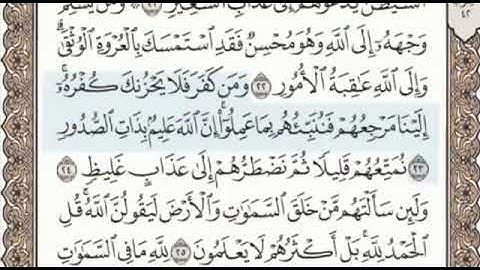 ٱلشَّيْطَٰنُ يَدْعُوهُمْ إِلَىٰ عَذَابِ ٱلسَّعِيرِ ٢١ وَمَن يُسْلِمْ
وَجْهَهُۥٓ إِلَى ٱللَّهِ وَهُوَ مُحْسِنٌ فَقَدِ ٱسْتَمْسَكَ بِٱلْعُرْوَةِ ٱلْوُثْقَىٰ ۗ
وَإِلَى ٱللَّهِ عَٰقِبَةُ ٱلْأُمُورِ ٢٢ وَمَن كَفَرَ فَلَا يَحْزُنكَ كُفْرُهُۥٓ ۚ
إِلَيْنَا مَرْجِعُهُمْ فَنُنَبِّئُهُم بِمَا عَمِلُوٓا۟ ۚ إِنَّ ٱللَّهَ عَلِيمٌۢ بِذَاتِ ٱلصُّدُورِ
٢٣ نُمَتِّعُهُمْ قَلِيلًا ثُمَّ نَضْطَرُّهُمْ إِلَىٰ عَذَابٍ غَلِيظٍ ٢٤
وَلَئِن سَأَلْتَهُم مَّنْ خَلَقَ ٱلسَّمَٰوَٰتِ وَٱلْأَرْضَ لَيَقُولُنَّ ٱللَّهُ ۚ قُلِ
ٱلْحَمْدُ لِلَّهِ ۚ بَلْ أَكْثَرُهُمْ لَا يَعْلَمُونَ ٢٥ لِلَّهِ مَا فِى ٱلسَّمَٰوَٰتِ